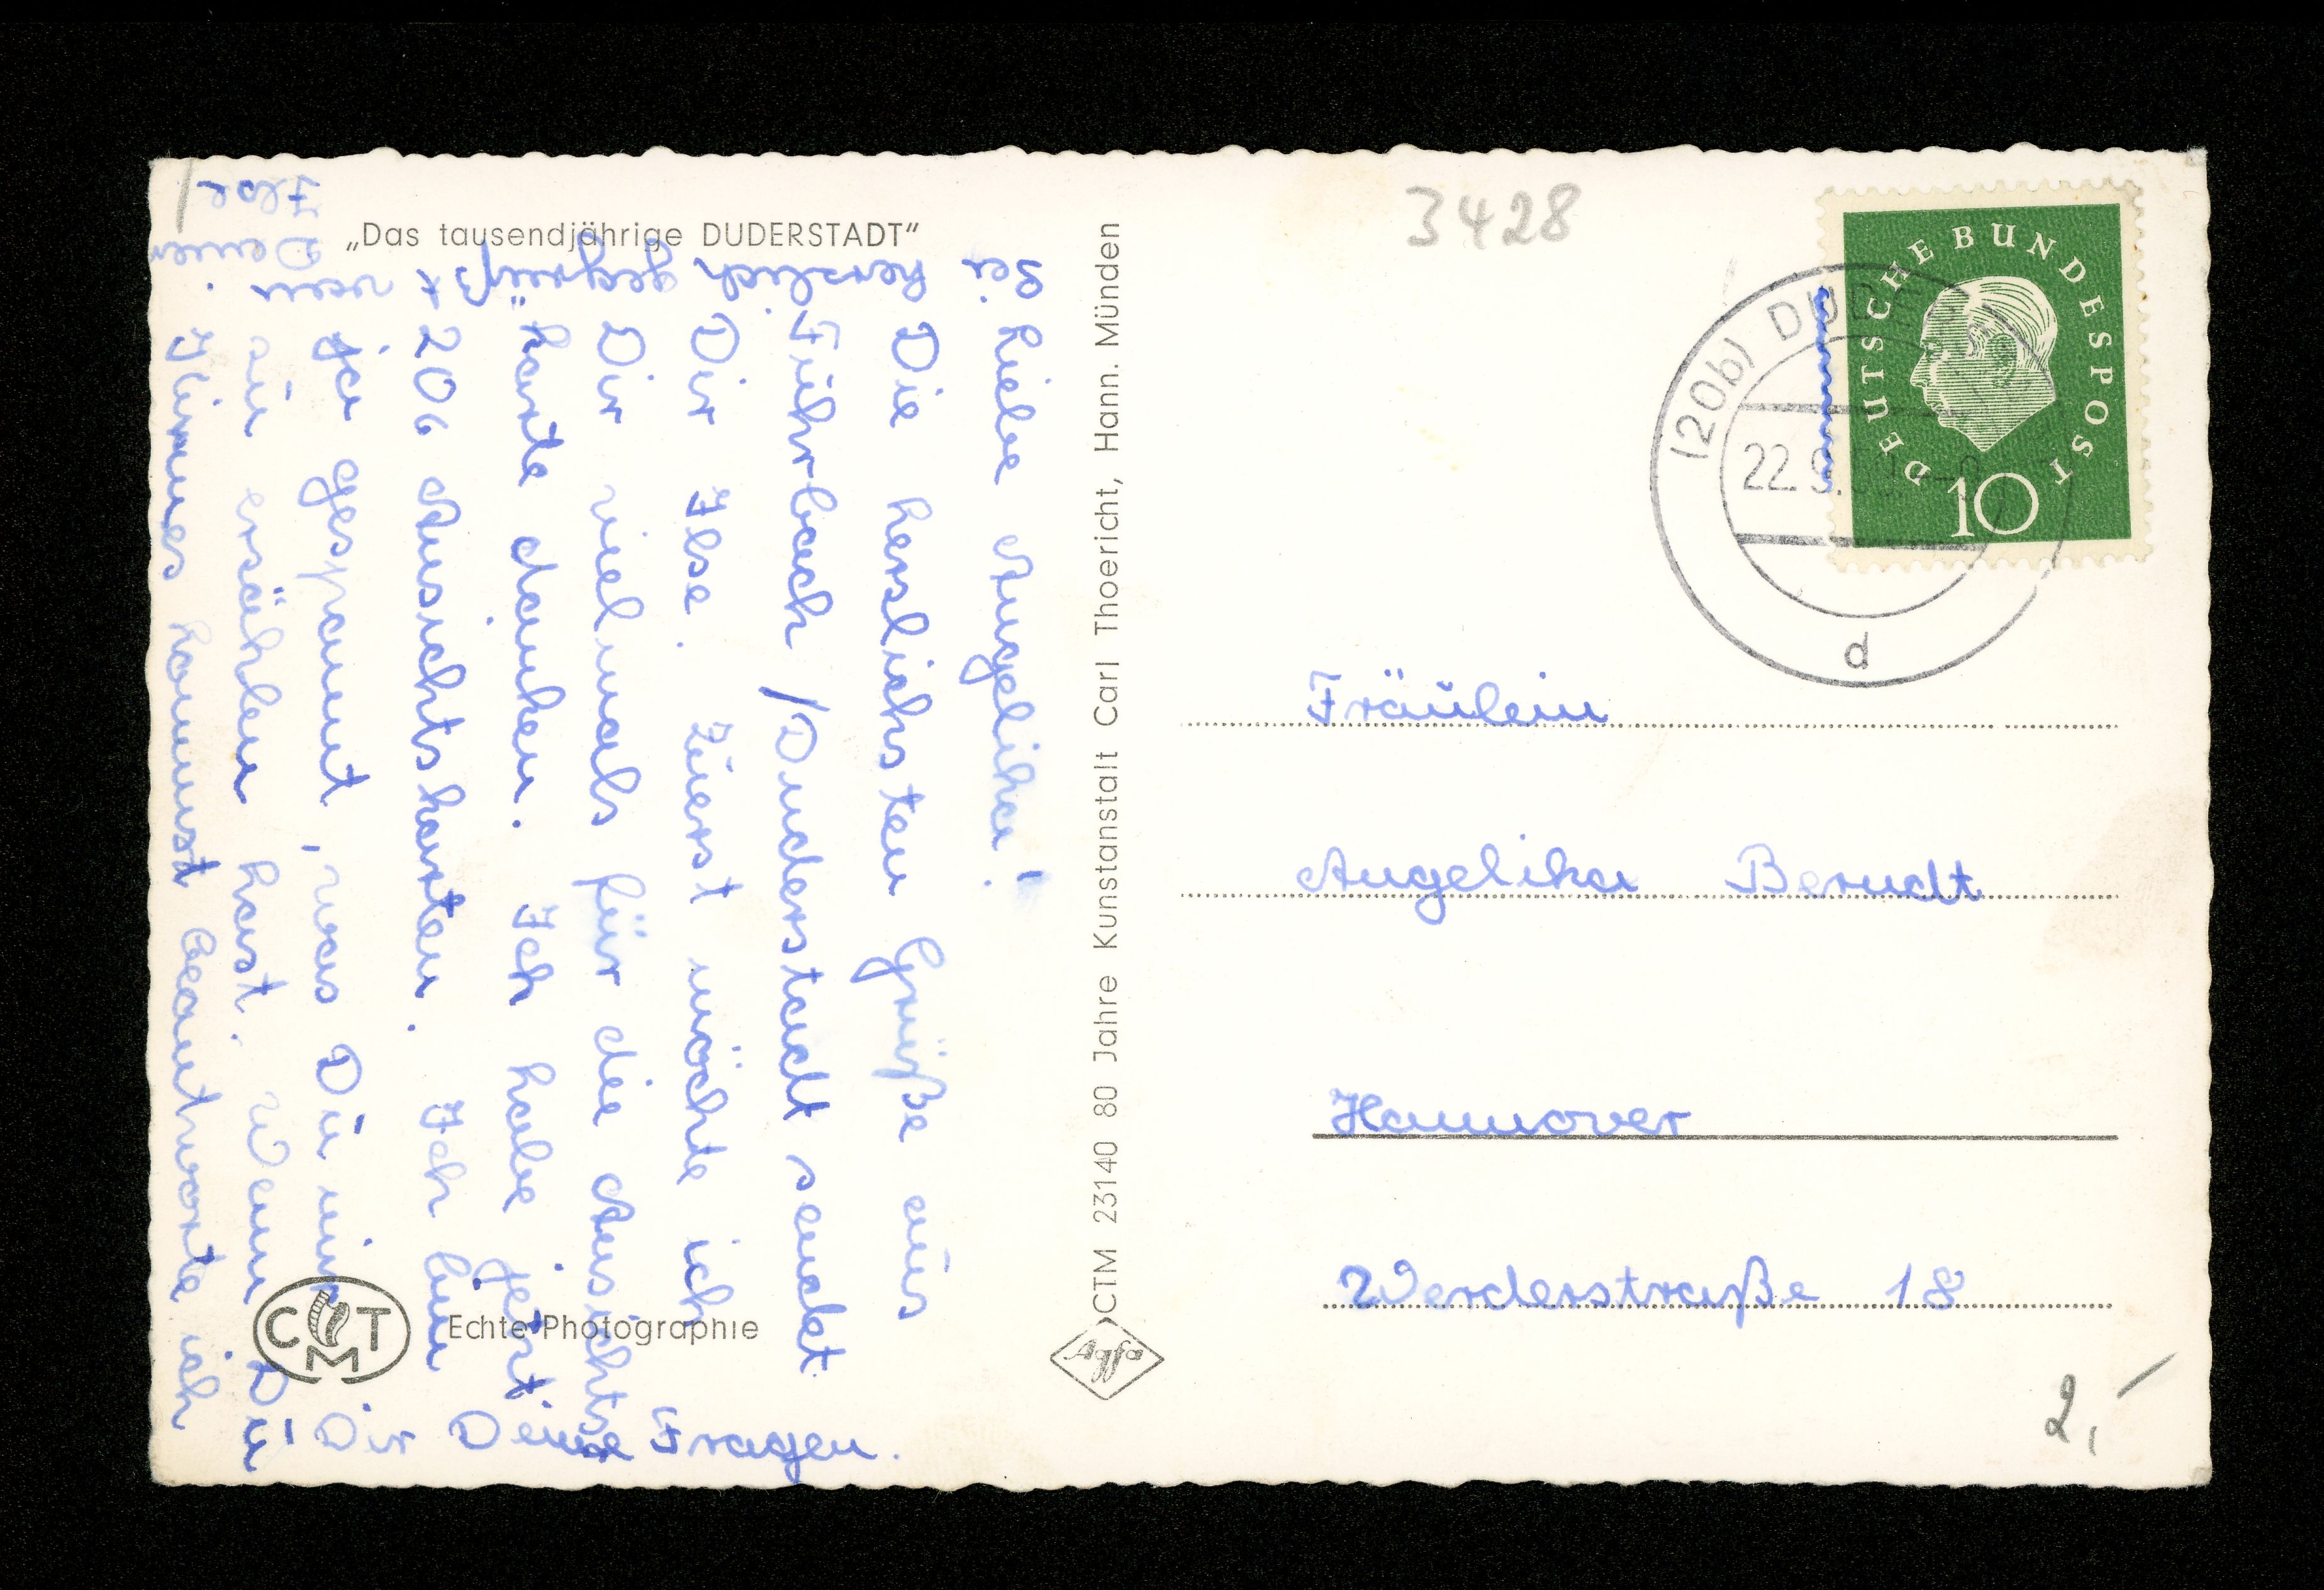 „Das tausendjährige DUDERSTADT“
Liebe Angelika!
Die herzlichsten Grüße aus
Fuhrbach / Duderstadt sendet
Dir Ilse. Zuerst möchte ich
Dir vielmals für die Ansichts-
karte danken. Ich habe jetzt
206 Ansichtskarten. Ich bin
ja gespannt, was Du mir
zu erzählen hast. Wenn Du
Kirmes kommst beantworte ich
Dir Deine Fragen.
Sei herzlich gegrüßt von
Deiner
Ilse
Echte Photographie
CMT
CTM 23140 80 Jahre Kunstanstalt Carl Thoericht, Hann. Münden
Agfa
3428
DEUTSCHE BUNDESPOST
10
(20b) DUDER
22.9.
d
Fräulein
Angelika Berndt
Hannover
Werderstraße 18
2,-